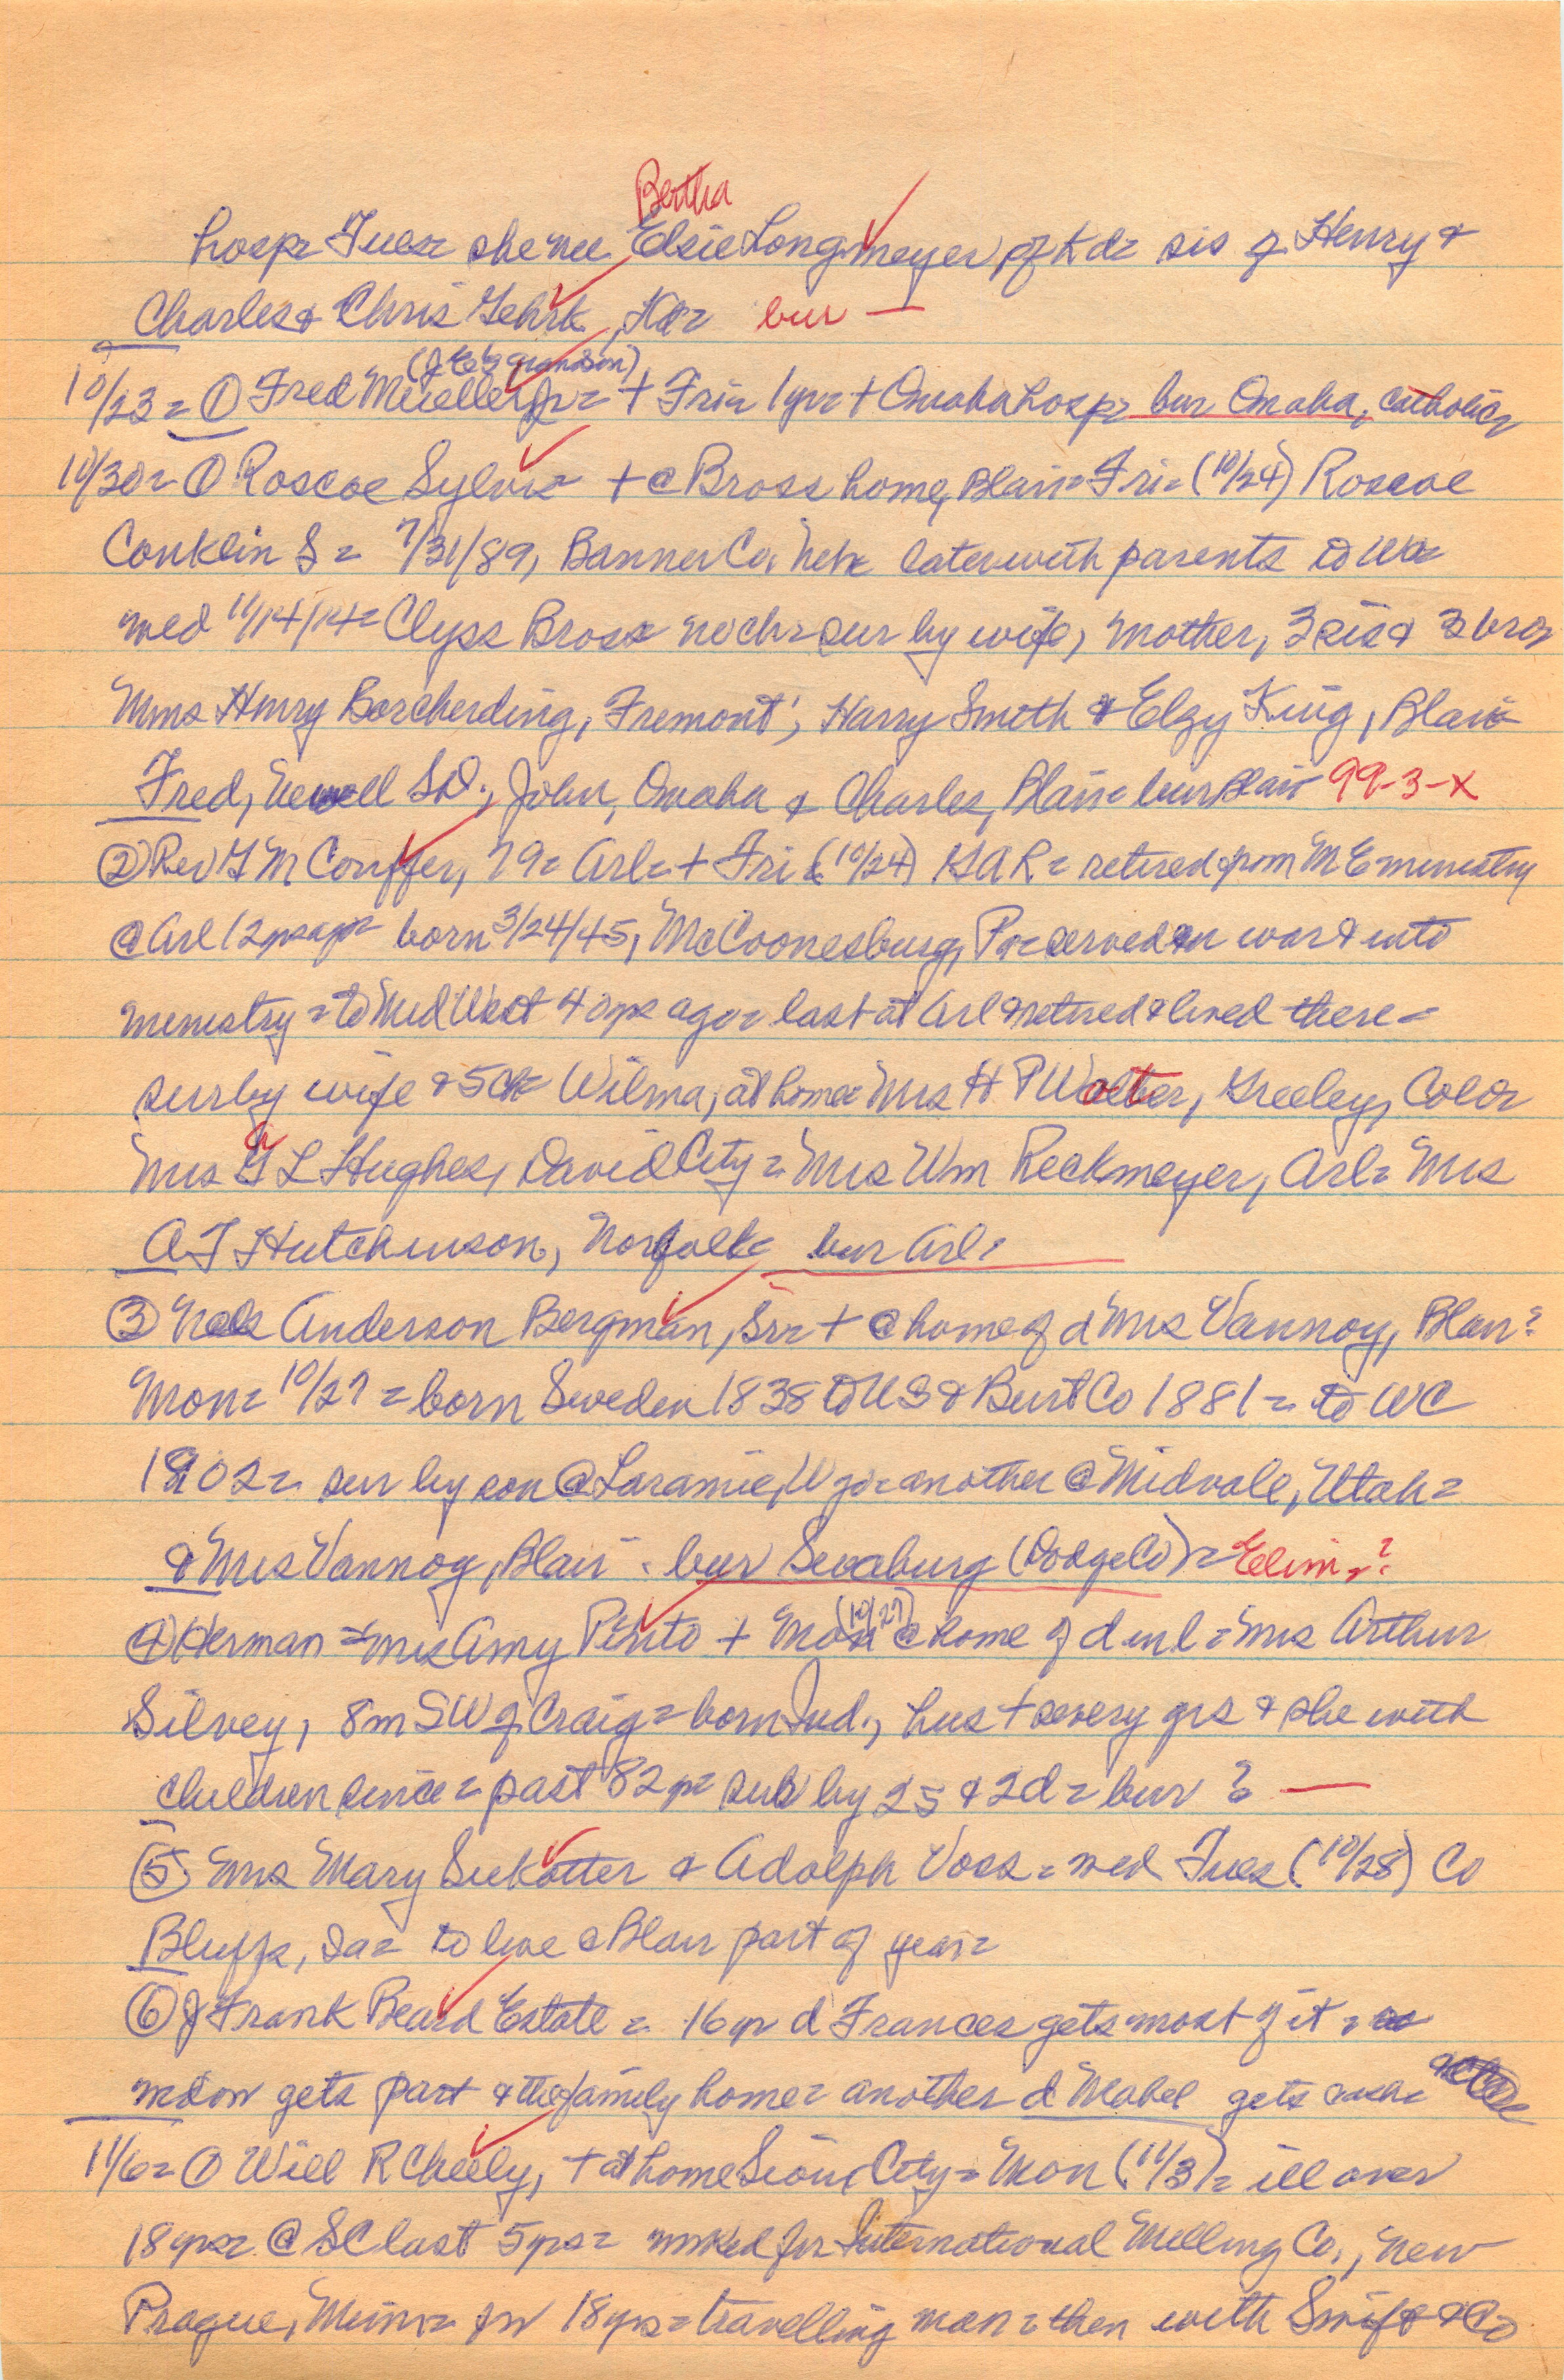 Bertha
hosp= Tues= she nee Elsie Longmeyer of Kd= sis of Henry &
Charles & Chris Gehrk, Kd= bur —
(J E's grandson)
10/23= ① Fred Mueller Jr= + Fri= 1yr= + Omaha hosp= bur Omaha, Catholic=
10/30= ① Roscoe Sylvis= + @ Bross home, Blair= Fri= (10/24) Roscoe
Conklin S= 7/31/89, Banner Co. Neb= later with parents to WC=
med 11/14/14= Clyss Bross= no ch= sur by wife, mother, 3 sis & 3 bros
Mms Henry Borcherding, Fremont; Harry Smith & Elzy King, Blair=
Fred, Newell SD., John, Omaha & Charles, Blair= bur Blair 99-3-X
② Rev G M Couffer, 79= Arl= + Fri (10/24) GAR= retired from M E ministry
@ Arl 12 yrs ago= born 3/24/45, McCoonesburg, Pa= served in war & into
ministry= to Mid West 40 yrs ago= last at Arl & retired & lived there=
sur by wife & 5 ch= Wilma, at home= Mrs H P Wolter, Greeley, Colo=
Mrs G L Hughes, David City= Mrs Wm Reckmeyer, Arl= Mrs
A J Hutchinson, Norfolk= bur Arl=
③ Nels Anderson Bergman, Sr= + @ home of d Mrs Vannoy, Blair=
Mon= 10/27= born Sweden 1838 to US & Burt Co 1881= to WC
1902= sur by son @ Laramie, Wyo= another @ Midvale, Utah=
& Mrs Vannoy, Blair. bur Swaburg (Dodge Co)= Elim=?
④ Herman= Mrs Amy Pinto + Mon (10/27) @ home of d inl= Mrs Arthur
Silvey, 8m SW of Craig= born Ind., hus + severy yrs & she with
children since= past 82 yr= sur by 2s & 2d= bur ? —
⑤ Mrs Mary Seekatter & Adolph Voss= med Tues (10/28) Co
Bluffs, Ia= to live @ Blair part of year=
⑥ J Frank Beard Estate= 16 yr d Frances gets most of it=
widow gets part & the family home= another d Mabel gets cash=
11/6= ① Will R Cheely, + at home Sioux City= Mon (11/3)= ill over
18 yrs= @ SC last 5 yrs= worked for International Milling Co., New
Prague, Minn= for 18 yrs= travelling man= then with Swift & Co